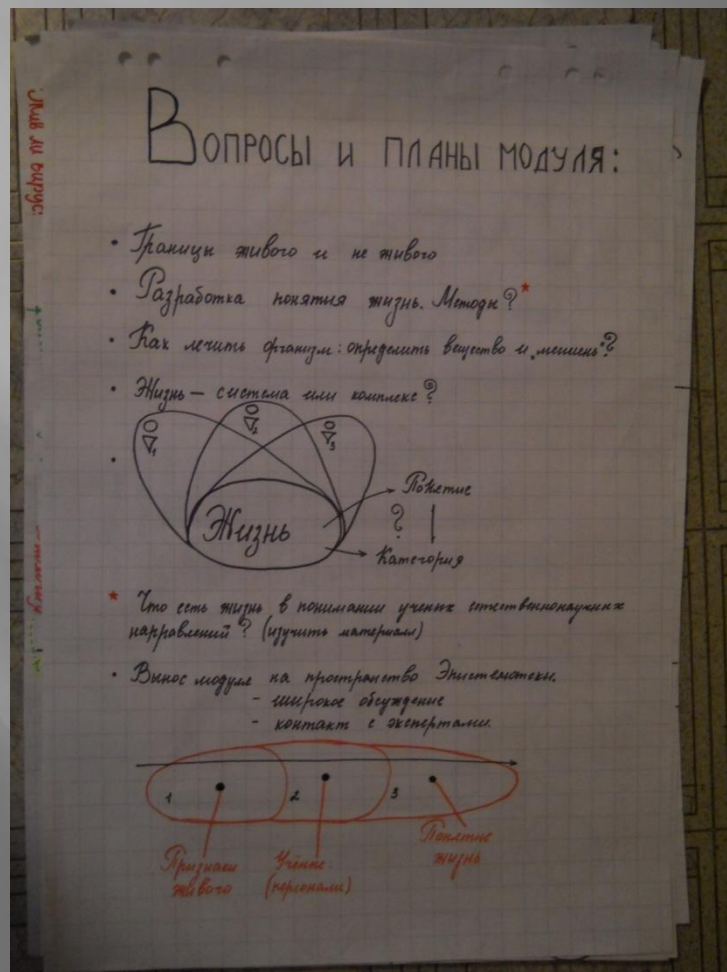 Жив ли вирус?
Вопросы и планы модуля:
• Границы живого и не живого
• Разработка понятия жизнь. Методы?*
• Как лечить организм: определить вещество и "мишень"?
• Жизнь – система или комплекс?
1
2
3
•
Понятие
Жизнь
?
Категория
* Что есть жизнь в понимании ученых естественнонаучных
нарравлений? (изучить материал)
• Вынос модуля на пространство Эпистемотеки.
- широкое обсуждение
- контакт с экспертами.
1
2
3
Признаки
живого
Учёные.
(персонали)
Понятие
жизнь